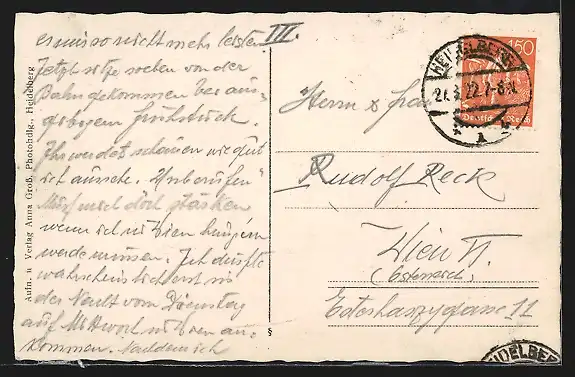 III.
es mir so nicht mehr leisten
Jetzt sitze soeben von der
Bahn gekommen bei aus-
gebogem Frühstück.
Ihr werdet schauen wie gut
ich aussehe. Unberufen
Muß mich doch stärken
wenn ich in Wien hungern
werde müssen. Ich dürfte
wahrscheinlich erst in
der Nacht vom Dienstag
auf Mittwoch in Wien an-
kommen. Nachdem ich
Aufn. u Verlag Anna Groß, Photohdlg., Heidelberg
§
HEIDELBERG
22.7-8
150
Deutsches Reich
Herrn & Frau
Rudolf Reck
Wien VI.
(Österreich)
Esterhazygasse 11
HEIDELBER